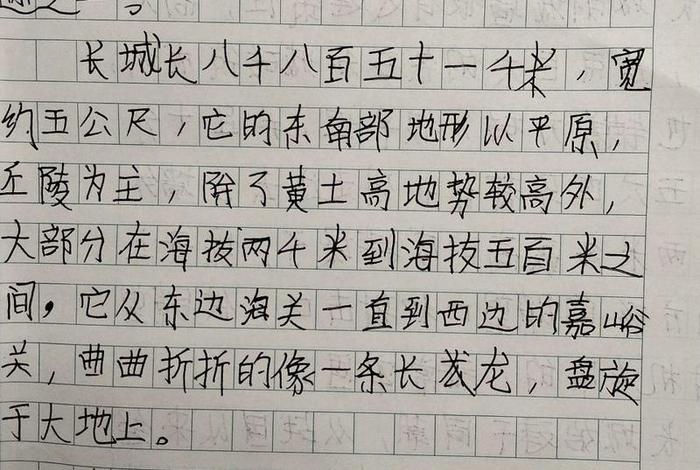 长城长八千八百五十一千米，宽
约五公尺，它的东南部地形以平原，
丘陵为主，除了黄土高地势较高外，
大部分在海拔两千米到海拔五百米之
间，它从东边海关一直到西边的嘉峪
关，曲曲折折的像一条长龙，盘旋
于大地上。